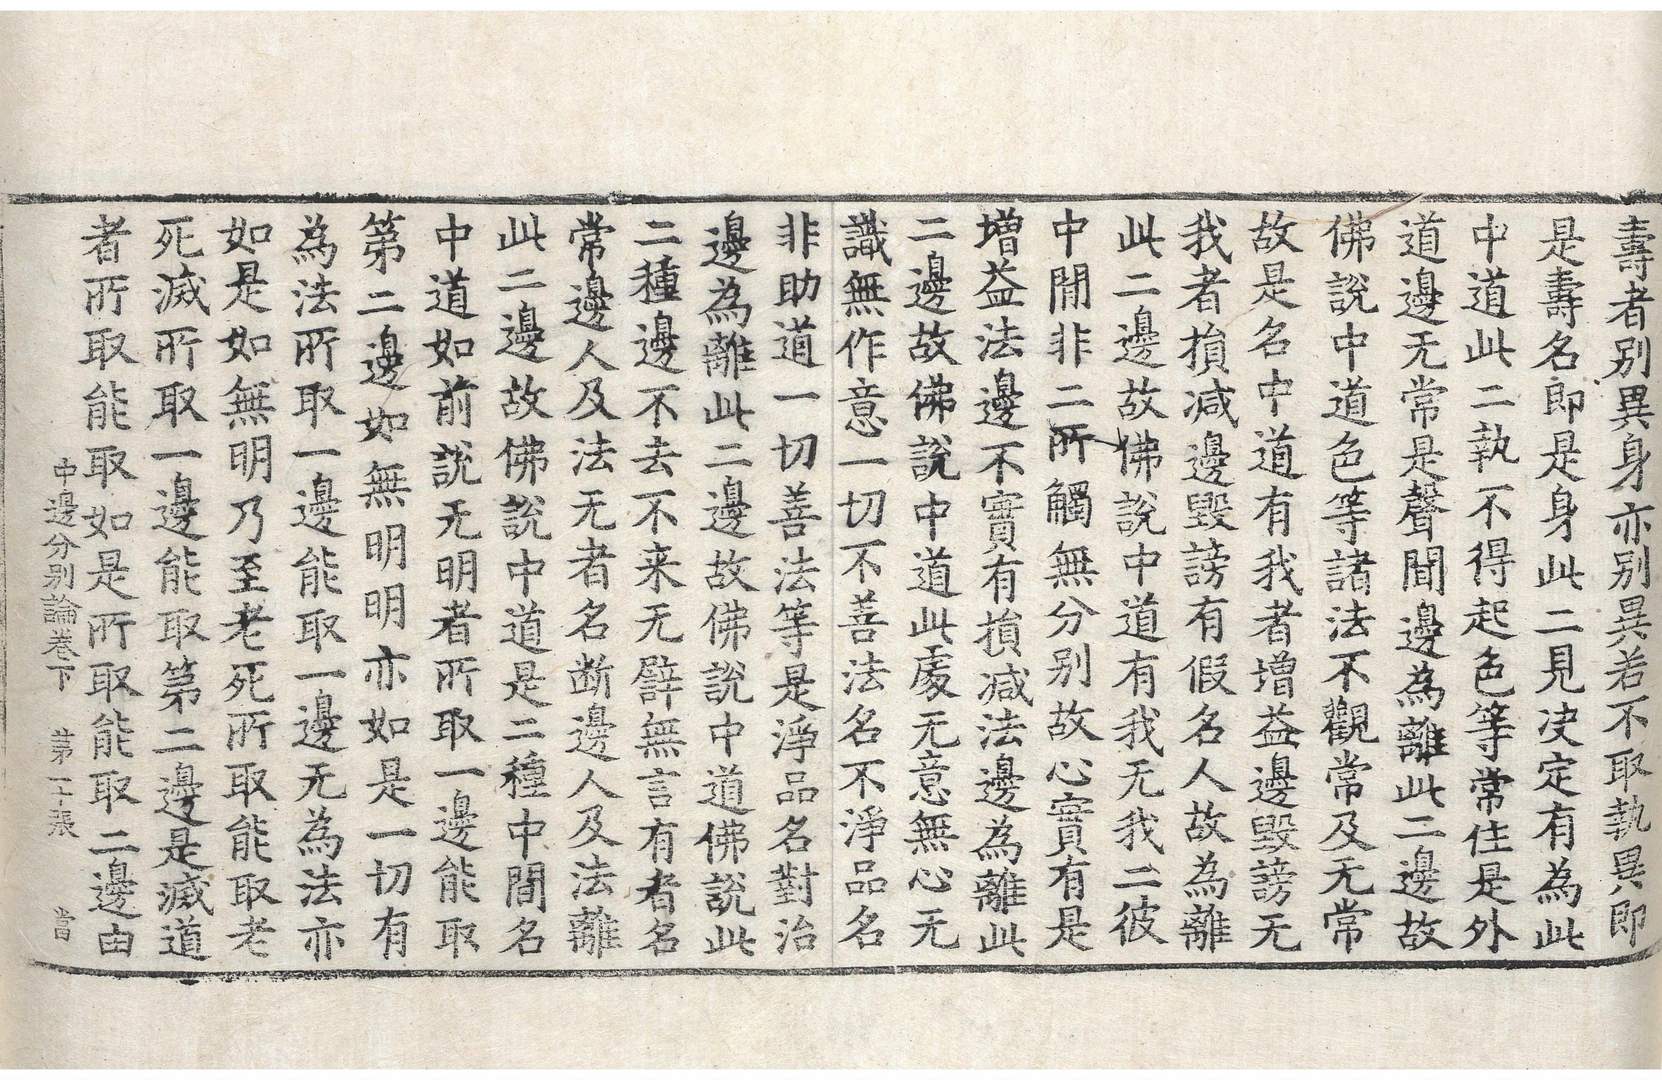 壽者别異身亦别異若不取執異即
是壽名即是身此二見决定有為此
中道此二執不得起色等常住是外
道邊无常是聲聞邊為離此二邊故
佛說中道色等諸法不觀常及无常
故是名中道有我者增益邊毀謗无
我者損减邊毀謗有假名人故為離
此二邊故佛說中道有我无我二彼
中間非二所觸無分别故心實有是
增益法邊不實有損减法邊為離此
二邊故佛說中道此處无意無心无
識無作意一切不善法名不淨品名
非助道一切善法等是淨品名對治
邊為離此二邊故佛說中道佛說此
二種邊不去不来无譬無言有者名
常邊人及法无者名断邊人及法離
此二邊故佛說中道是二種中間名
中道如前說无明者所取一邊能取
第二邊如無明明亦如是一切有
為法所取一邊能取一邊无為法亦
如是如無明乃至老死所取能取老
死滅所取一邊能取第二邊是滅道
者所取能取如是所取能取二邊由
中邊分别論卷下　第二十張　當